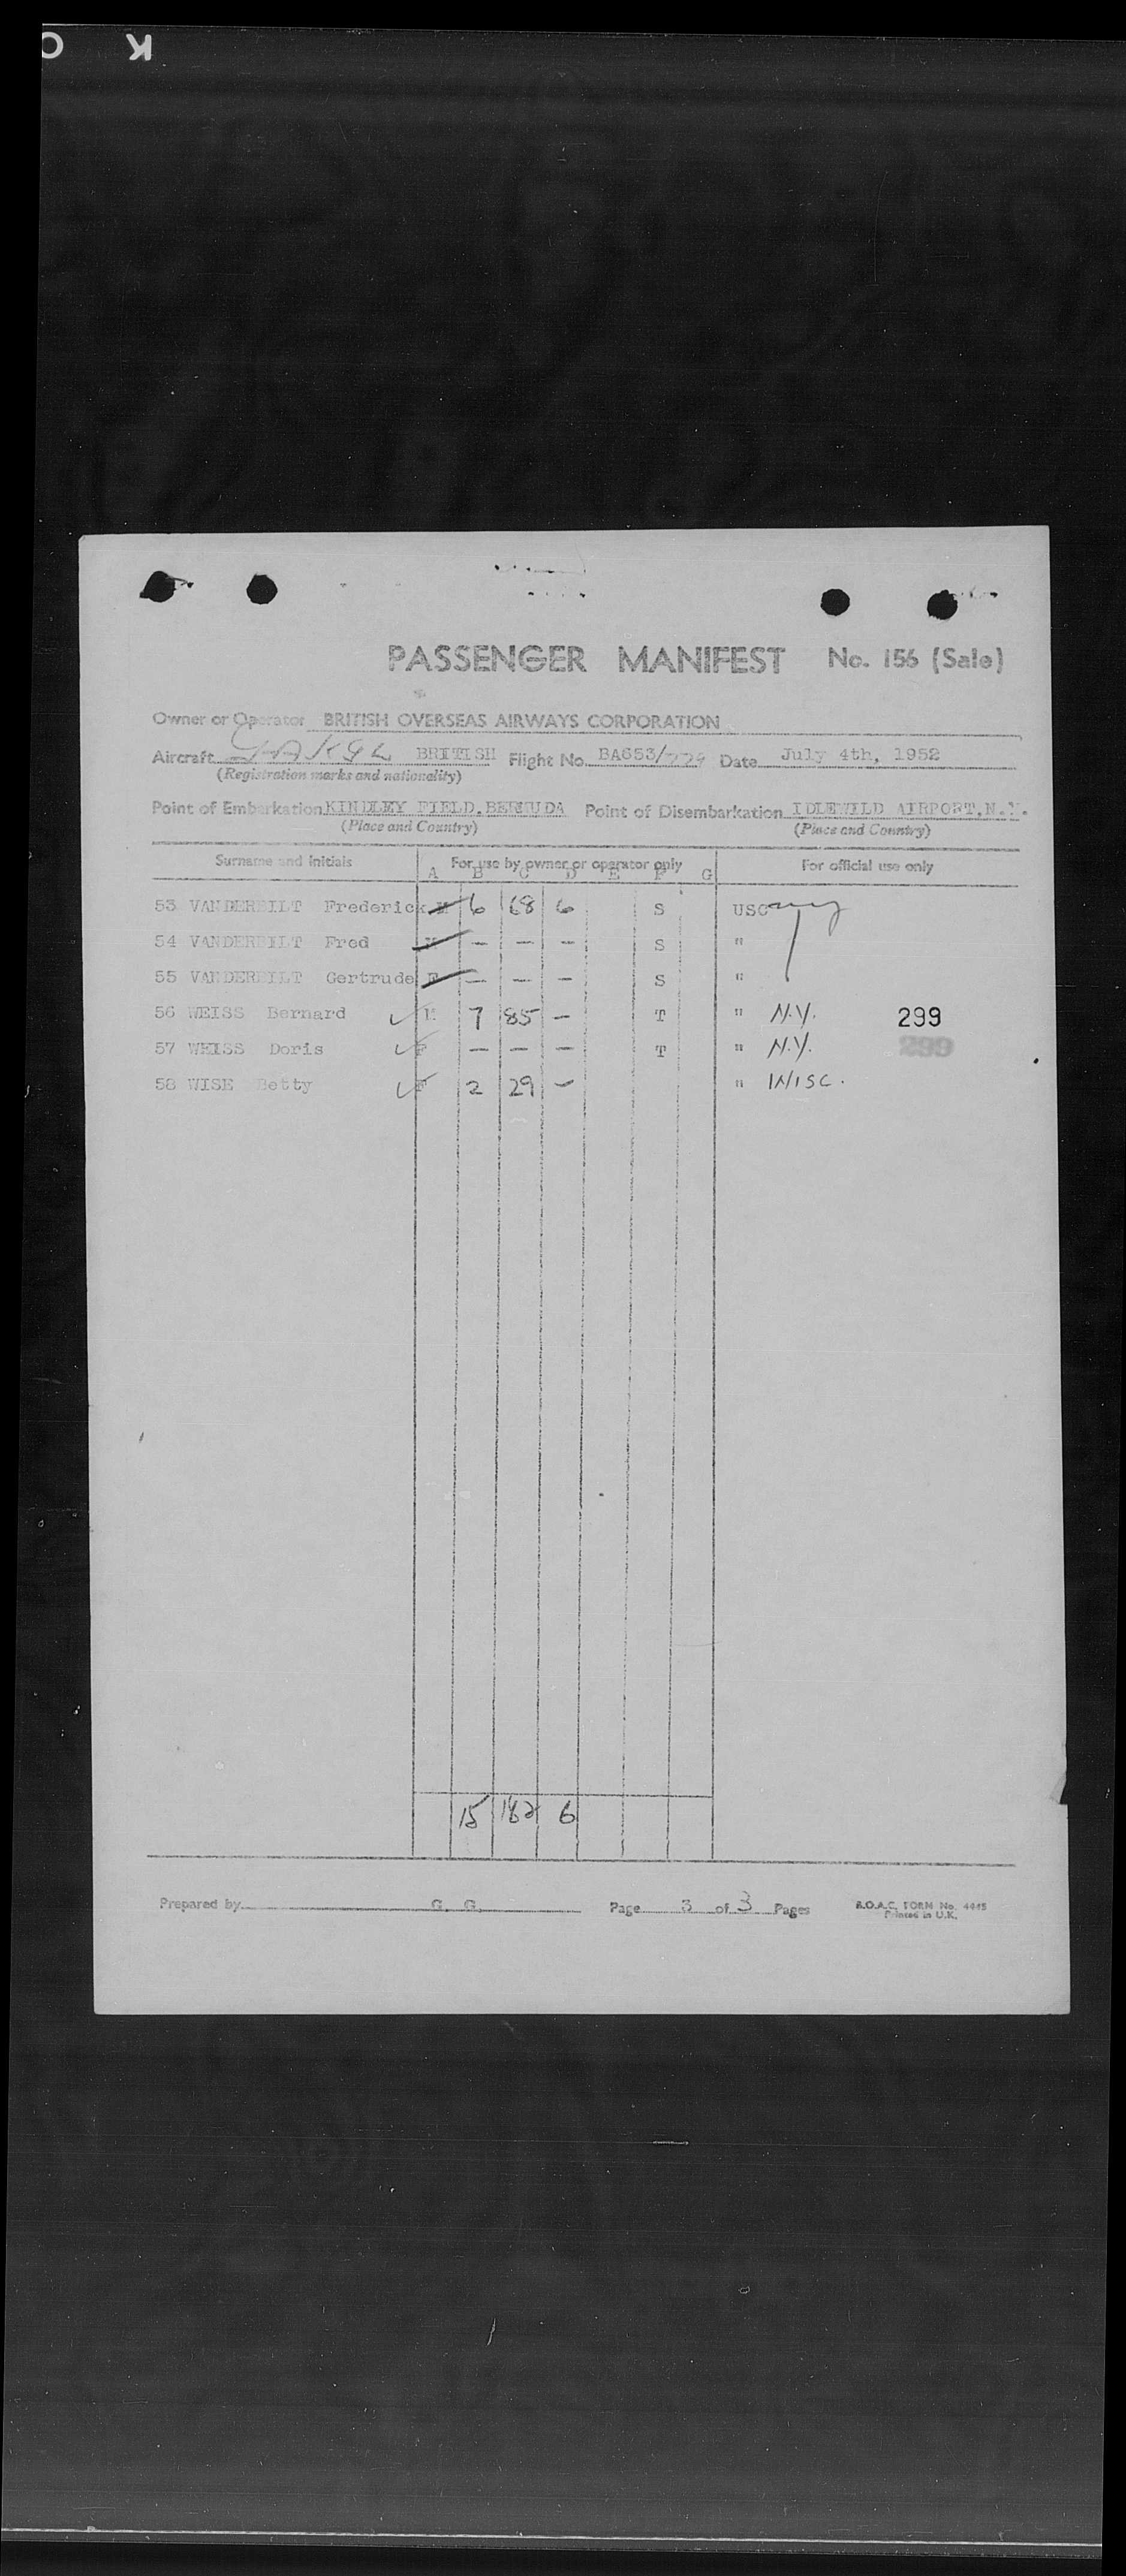 K O
PASSENGER MANIFEST No. 156 (Sale)
Owner or Operator BRITISH OVERSEAS AIRWAYS CORPORATION
Aircraft BRITISH Flight No. BA653/ Date July 4th, 1952
(Registration marks and nationality)
Point of Embarkation KINDLEY FIELD, BERMUDA Point of Disembarkation IDLEWILD AIRPORT, N.Y.
(Place and Country) (Place and Country)
Surname and initials For use by owner or operator only For official use only
A B C D E F G
53 VANDERBILT Frederick M 6 68 6 S USC NY
54 VANDERBILT Fred M — — — S "
55 VANDERBILT Gertrude F — — — S "
56 WEISS Bernard M 7 85 — T " N.Y. 299
57 WEISS Doris F — — — T " N.Y. 299
58 WISE Betty F 2 29 — " WISC.
15 182 6
Prepared by G. G. Page 3 of 3 Pages B.O.A.C. FORM No. 4445
Printed in U.K.